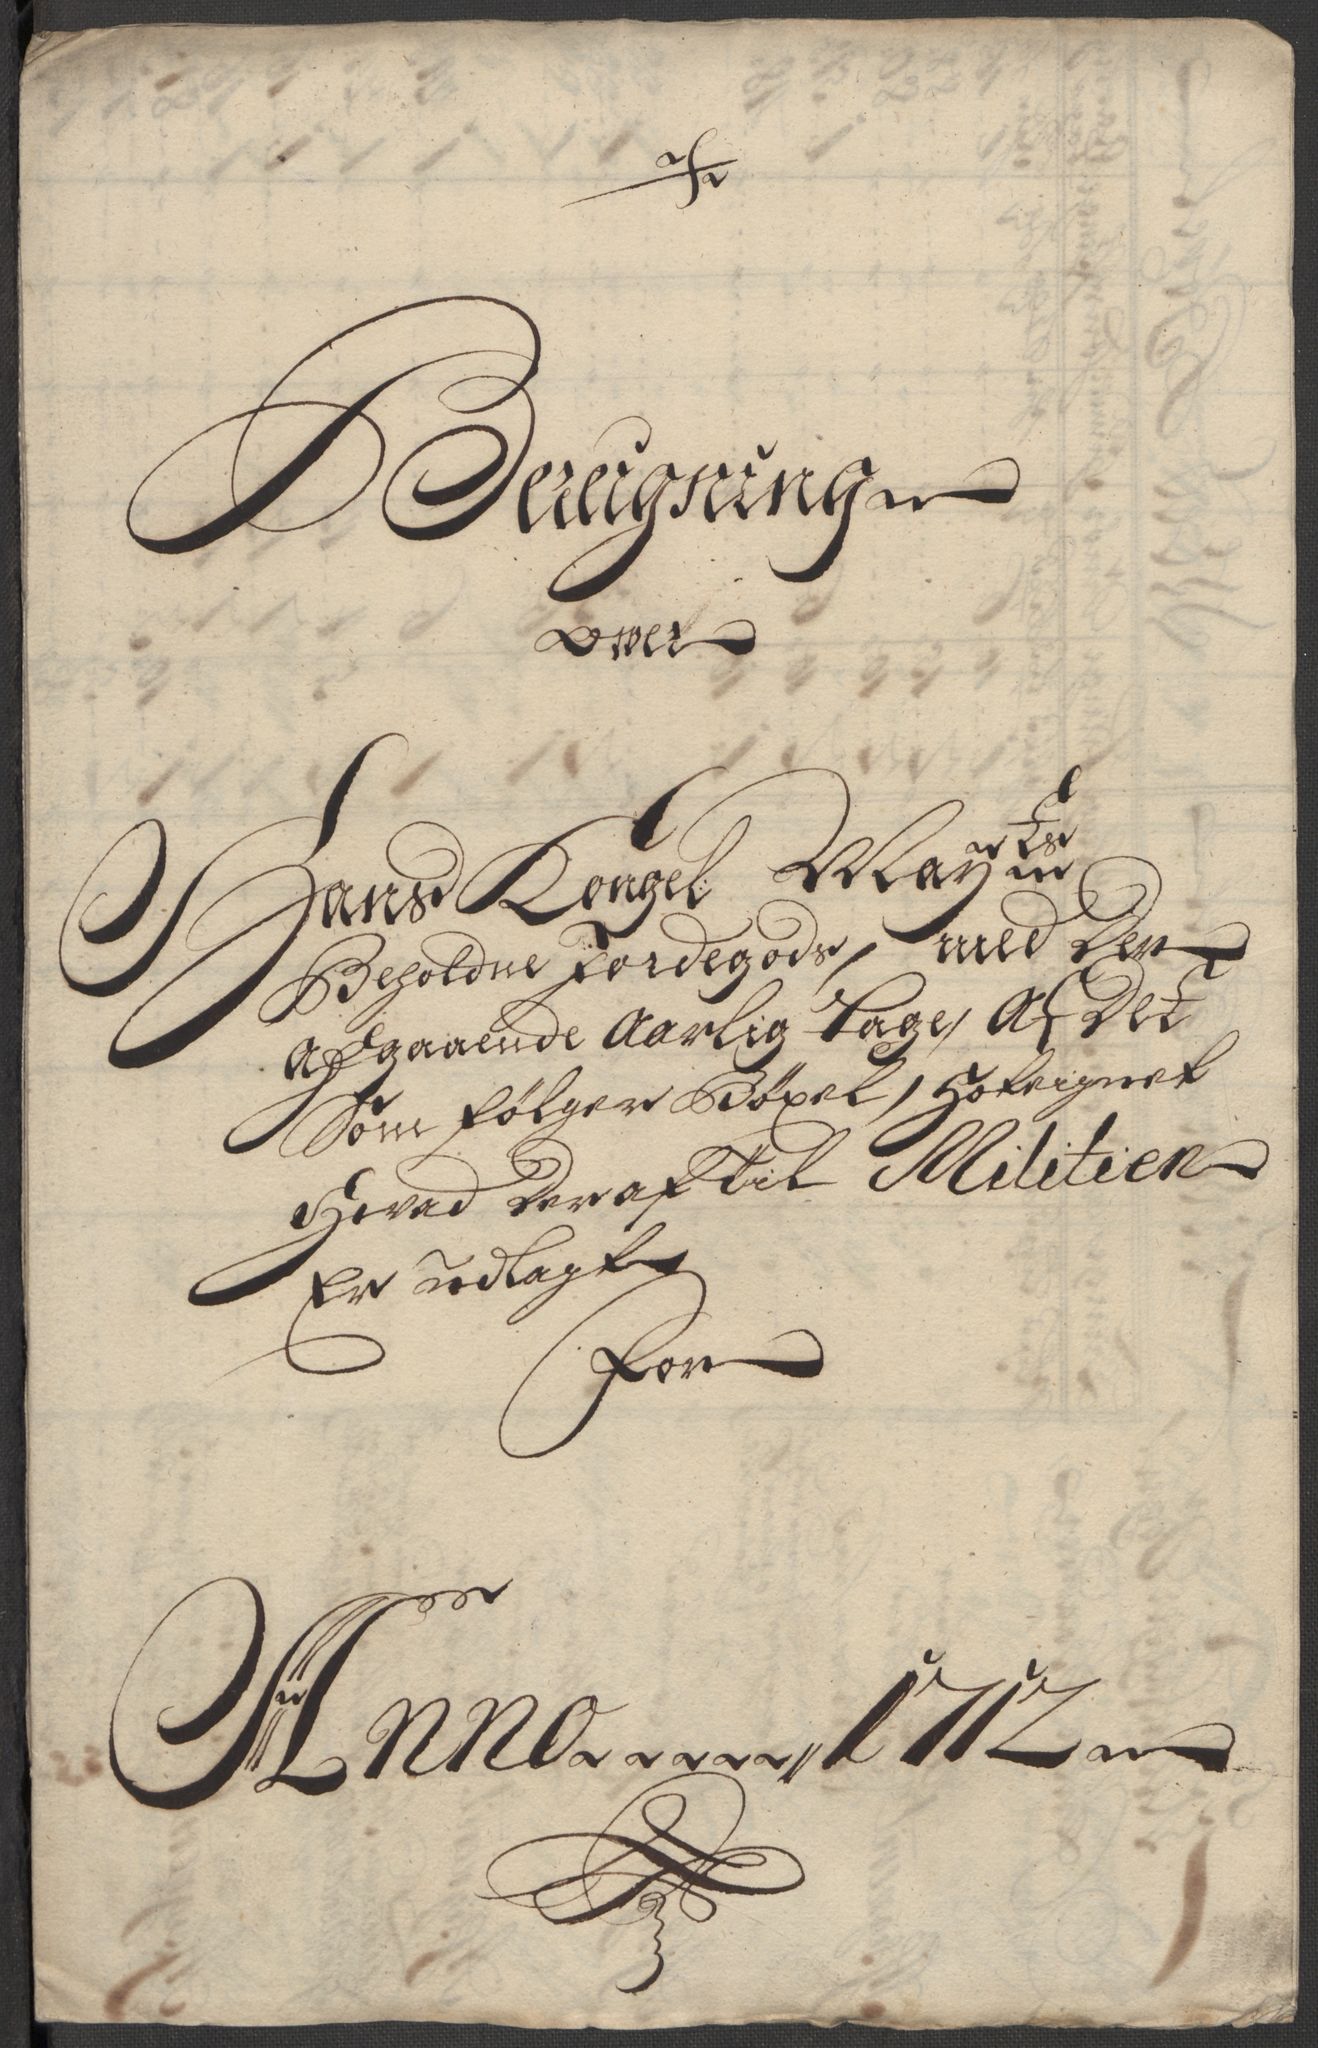 Bereigning
over
Hans Kongel: May:ts
Beholdne Jordegods, med Den
afgaaende Aarlig Tage, Af Det
Som følger Bøxel, Saleignet
Hvad deraf til Militien
Er udlagt
For
Anno 1712